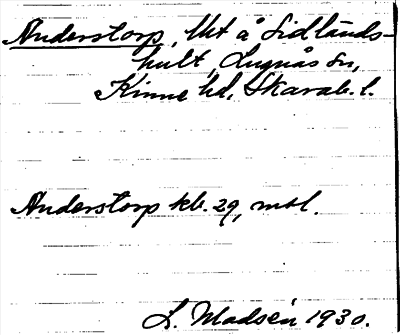 Anderstorp, Ut å Sidlands-
hult, Lugnås sn,
Kinne hd, Skarab. l.
Anderstorp kb. 29, mtl.
L. Madsén 1930.